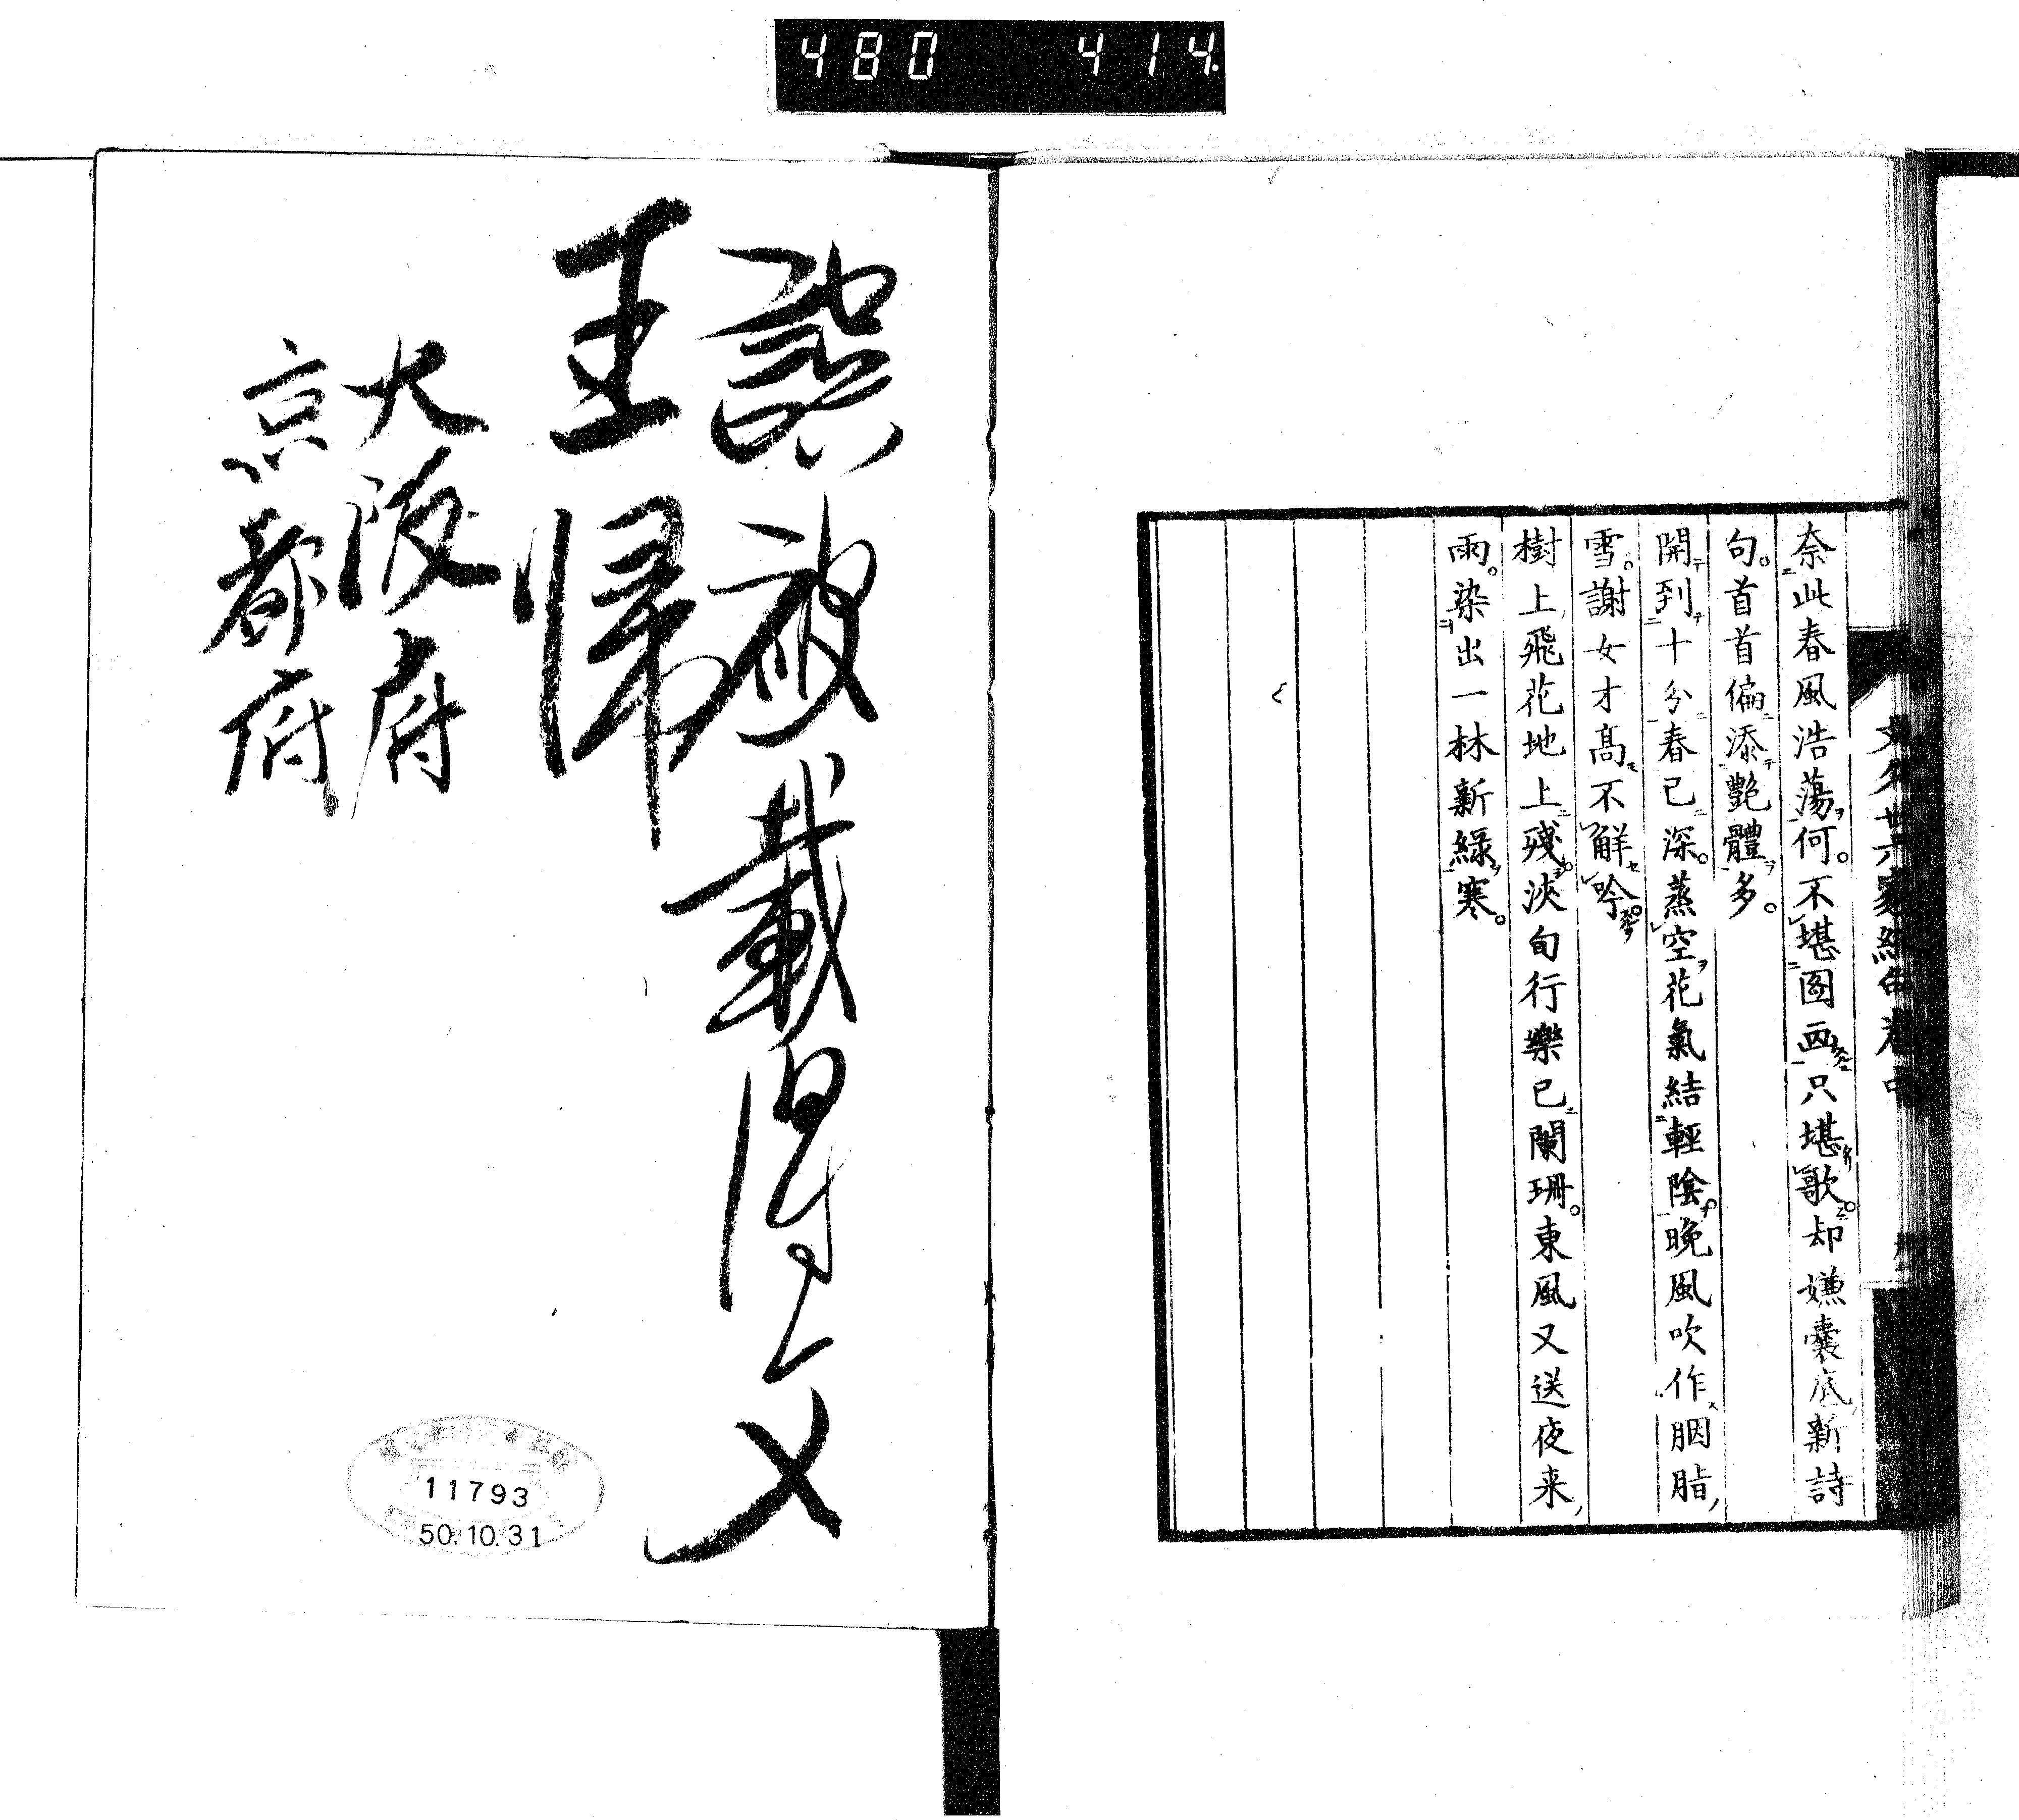 480 414
奈此春風浩蕩何。不堪圖画只堪歌。却嫌囊底新詩
句。首首偏添艷體多。
開到十分春已深。蒸空花氣結輕陰。晩風吹作胭脂
雪。謝女才高不解吟。
樹上飛花地上殘。浹旬行樂已闌珊。東風又送夜来
雨。染出一林新綠寒。
文久廿六家絶句卷中
誤被載得文
王歸
大阪府
京都府
11793
50.10.31